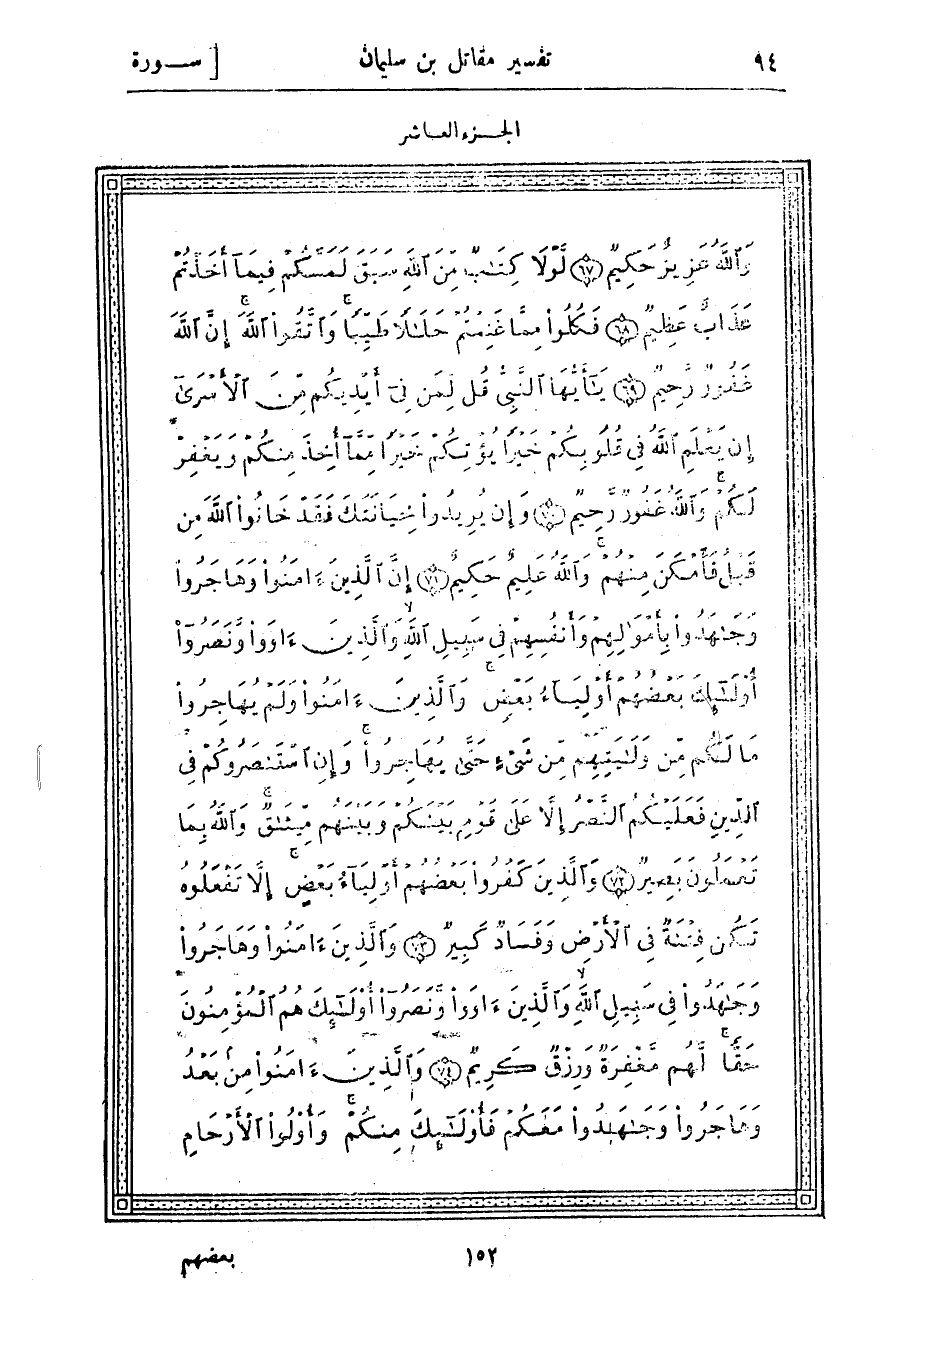 ٩٤ تفسير مقاتل بن سليمان [ ســورة
الجــزء العــاشر
وَٱللَّهُ عَزِيزٌ حَكِيمٌ ٦٧ لَّوْلَا كِتَٰبٌ مِّنَ ٱللَّهِ سَبَقَ لَمَسَّكُمْ فِيمَآ أَخَذْتُمْ
عَذَابٌ عَظِيمٌ ٦٨ فَكُلُوا۟ مِمَّا غَنِمْتُمْ حَلَٰلًا طَيِّبًا ۚ وَٱتَّقُوا۟ ٱللَّهَ ۚ إِنَّ ٱللَّهَ
غَفُورٌ رَّحِيمٌ ٦٩ يَٰٓأَيُّهَا ٱلنَّبِىُّ قُل لِّمَن فِىٓ أَيْدِيكُم مِّنَ ٱلْأَسْرَىٰٓ
إِن يَعْلَمِ ٱللَّهُ فِى قُلُوبِكُمْ خَيْرًا يُؤْتِكُمْ خَيْرًا مِّمَّآ أُخِذَ مِنكُمْ وَيَغْفِرْ
لَكُمْ ۗ وَٱللَّهُ غَفُورٌ رَّحِيمٌ ٧٠ وَإِن يُرِيدُوا۟ خِيَانَتَكَ فَقَدْ خَانُوا۟ ٱللَّهَ مِن
قَبْلُ فَأَمْكَنَ مِنْهُمْ ۗ وَٱللَّهُ عَلِيمٌ حَكِيمٌ ٧١ إِنَّ ٱلَّذِينَ ءَامَنُوا۟ وَهَاجَرُوا۟
وَجَٰهَدُوا۟ بِأَمْوَٰلِهِمْ وَأَنفُسِهِمْ فِى سَبِيلِ ٱللَّهِ وَٱلَّذِينَ ءَاوَوا۟ وَّنَصَرُوٓا۟
أُو۟لَٰٓئِكَ بَعْضُهُمْ أَوْلِيَآءُ بَعْضٍ ۚ وَٱلَّذِينَ ءَامَنُوا۟ وَلَمْ يُهَاجِرُوا۟
مَا لَكُم مِّن وَلَٰيَتِهِم مِّن شَىْءٍ حَتَّىٰ يُهَاجِرُوا۟ ۚ وَإِنِ ٱسْتَنصَرُوكُمْ فِى
ٱلدِّينِ فَعَلَيْكُمُ ٱلنَّصْرُ إِلَّا عَلَىٰ قَوْمٍۭ بَيْنَكُمْ وَبَيْنَهُم مِّيثَٰقٌ ۗ وَٱللَّهُ بِمَا
تَعْمَلُونَ بَصِيرٌ ٧٢ وَٱلَّذِينَ كَفَرُوا۟ بَعْضُهُمْ أَوْلِيَآءُ بَعْضٍ ۚ إِلَّا تَفْعَلُوهُ
تَكُن فِتْنَةٌ فِى ٱلْأَرْضِ وَفَسَادٌ كَبِيرٌ ٧٣ وَٱلَّذِينَ ءَامَنُوا۟ وَهَاجَرُوا۟
وَجَٰهَدُوا۟ فِى سَبِيلِ ٱللَّهِ وَٱلَّذِينَ ءَاوَوا۟ وَّنَصَرُوٓا۟ أُو۟لَٰٓئِكَ هُمُ ٱلْمُؤْمِنُونَ
حَقًّا ۚ لَّهُم مَّغْفِرَةٌ وَرِزْقٌ كَرِيمٌ ٧٤ وَٱلَّذِينَ ءَامَنُوا۟ مِنۢ بَعْدُ
وَهَاجَرُوا۟ وَجَٰهَدُوا۟ مَعَكُمْ فَأُو۟لَٰٓئِكَ مِنكُمْ ۚ وَأُو۟لُوا۟ ٱلْأَرْحَامِ
١٥٢ بعضهم